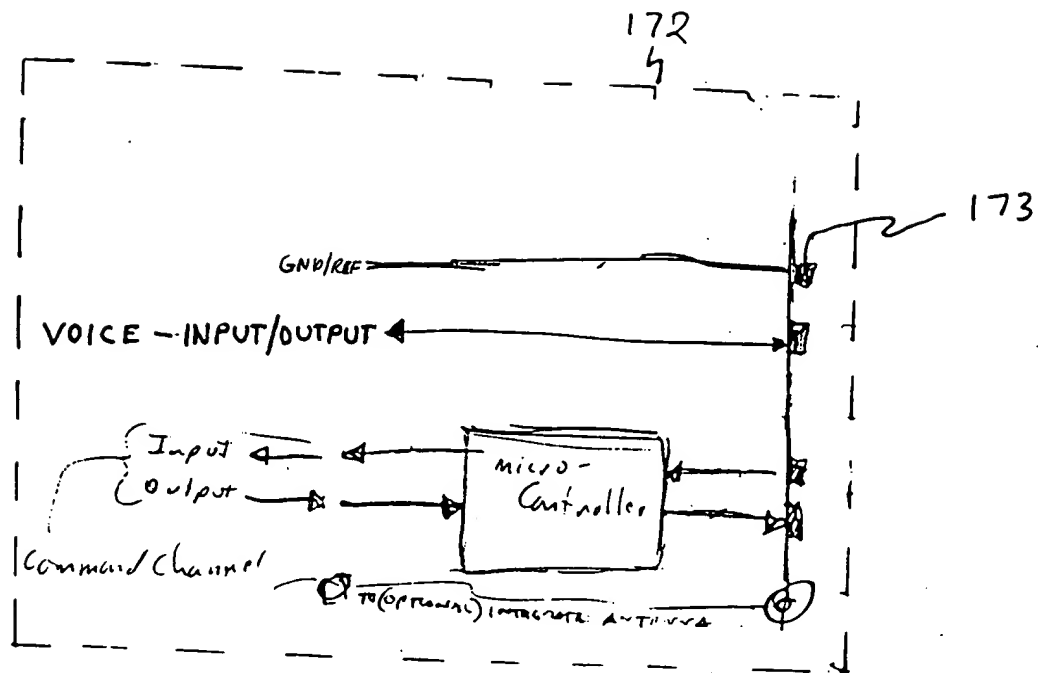 172
173
GND/REF
VOICE - INPUT/OUTPUT
Input
Output
micro-
Controller
Command Channel
TO (OPTIONAL) INTEGRATE ANTENNA